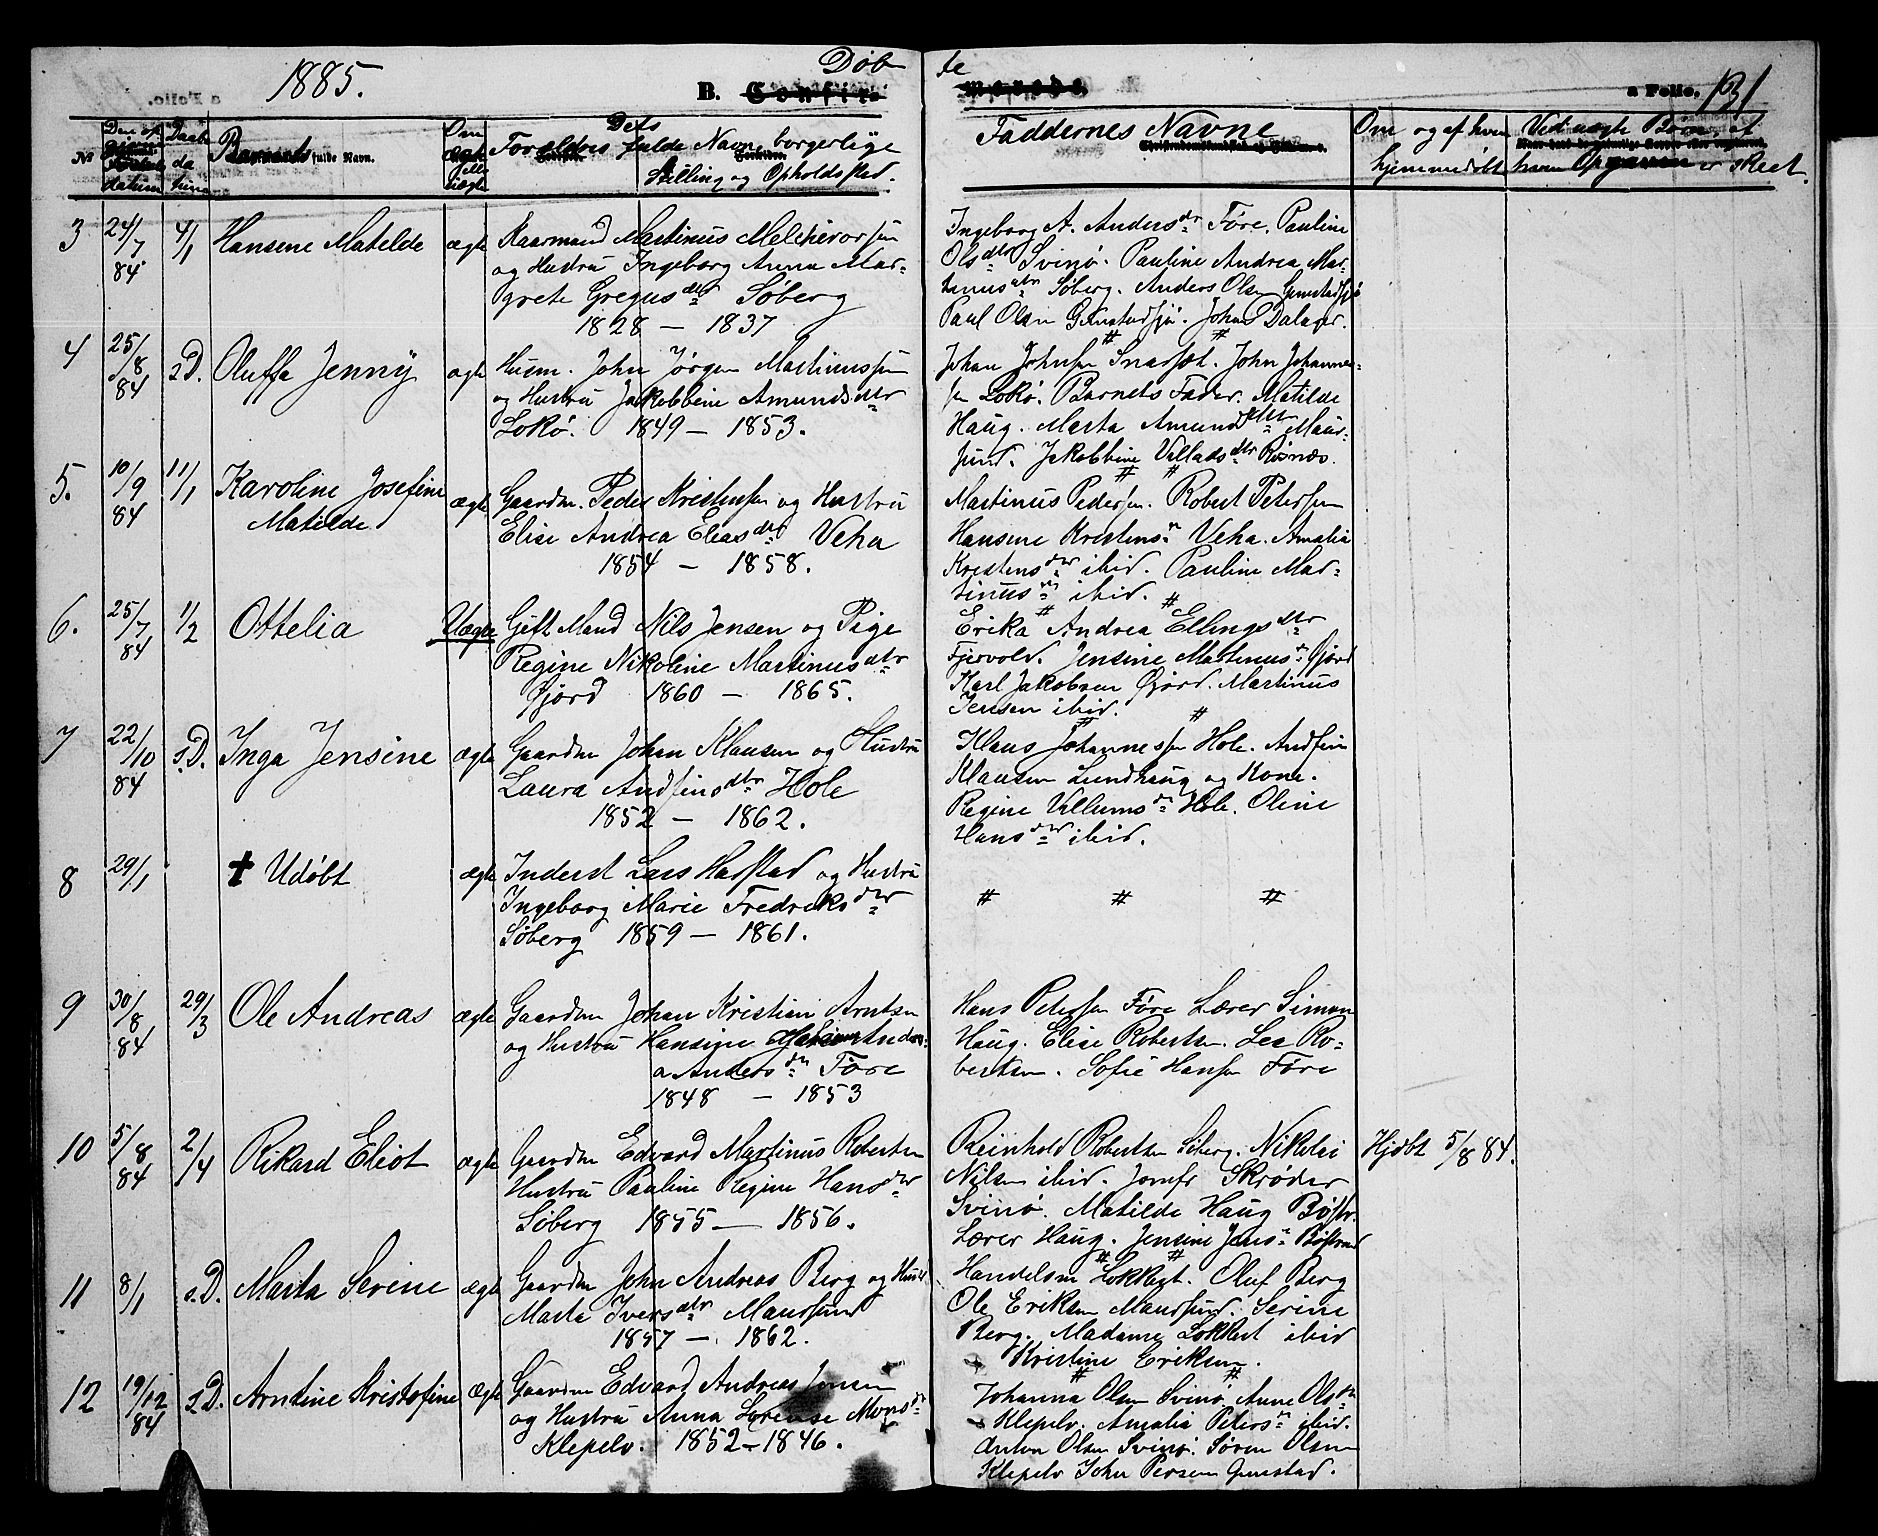 1885.
Døb
te
B. Confir-
merede.
a Folio. 131
№
Barnets fulde Navn.
Om ægte eller uægte
Forældres fulde Navn, borgerlige
Stilling og Opholdsted.
Faddernes Navne
Om og af hvem
hjemmedøbt
Ved uægte Børn, af
hvem Opgaven er skeet.
3 24/7 84 4/1 Hansene Matilde ægte Kaarmand Martinus Melchiorsen
og Hustru Ingeborg Anna Mar-
grete Gregusdtr Søberg
1828 — 1837
Ingeborg A. Andersdtr Føre. Pauline
Olsdtr Svinø. Pauline Andrea Mar-
tinusdtr Søberg. Anders Olsen Grunstadsjø
Paul Olsen Johan Dalager.
4 25/8 84 s.D. Oluffa Jenny ægte Husm. John Jørgen Martinussen
og Hustru Jakobbine Amundsdtr
Lokø. 1849 — 1853.
Johan Johnsen Snarset. John Johannes-
sen Lokø. Barnets Fader. Matilde
Haug. Marta Amundsdtr Maur-
sund. Jakobbine Villadsdtr Risnæs.
5. 10/9 84 11/1 Karoline Josefine
Matilde ægte Gaardm. Peder Kristensen og Hustru
Elise Andrea Eliasdtr Veha
1854 — 1858.
Martinus Pedersen. Robert Petersen
Hansene Kristens. Veha. Amalia
Kristensdtr ibid. Pauline Mar-
tinusdtr ibid.
6. 25/7 84 1/2 Ottelia Uægte Gift Mand Nils Jensen og Pige
Regine Nikoline Martinusdtr
Gjord 1860 — 1865.
Erika Andrea Ellingsdtr
Fjervold. Jensine Martinusdtr Gjord
Karl Jakobsen Gjord. Martinus
Jensen ibid.
7 22/10 84 s.D. Inga Jensine ægte Gaardm Johan Klausen og Hustru
Laura Andfinsdtr Hole
1852 — 1862.
Klaus Johannessen Hole. Andfin
Klausen Lundhaug og Kone.
Regine Villumsdtr Hole. Oline
Hansdtr ibid.
8 29/1 † Udøbt ægte Inderst Lars Harstad og Hustru
Ingeborg Marie Fredriksdtr
Søberg 1859 — 1861.
〃 〃 〃
9 30/8 84 29/3 Ole Andreas ægte Gaardm Johan Kristian Arntsen
og Hustru Hansine Andre-
a Andersdtr Føre
1848 — 1853
Hans Petersen Føre Lærer Simon
Haug. Elise Robertsen. Lea Ro-
bertsen. Sofie Hansen Føre
10 5/8 84 2/4 Rikard Eliot ægte Gaardm Edvard Martinus Robertsen
Hustru Pauline Regine Hansdtr
Søberg 1855 — 1856.
Reinhold Robertsen Søberg. Nikolai
Nilsen ibid. Jomfr Skrøder
Svinø. Matilde Haug Bøstr.
Lærer Haug. Jensine Jens. Bøstrand
Hjdbt 5/8 84.
11 8/1 s.D. Marta Serine ægte Gaardm John Andreas Berg og Hustr
Marta Iversdtr Maursund
1857 — 1862.
Handelsm Lokkert. Oluf Berg
Ole Eriksen Maursund. Serine
Berg. Madame Lokkert ibid
Kristine Eriksen.
12 19/12 84 s.D. Arntine Kristofine ægte Gaardm Edvard Andreas Jonsen
og Hustru Anna Lorense Monsdtr
Klepelv. 1852 — 1846.
Johanna Olsen Svinø. Anne Olsdtr
Klepelv. Amalia Petersdtr ibid.
Anton Olsen Svinø. Søren Olsen
Klepelv John Persen Grunstad.